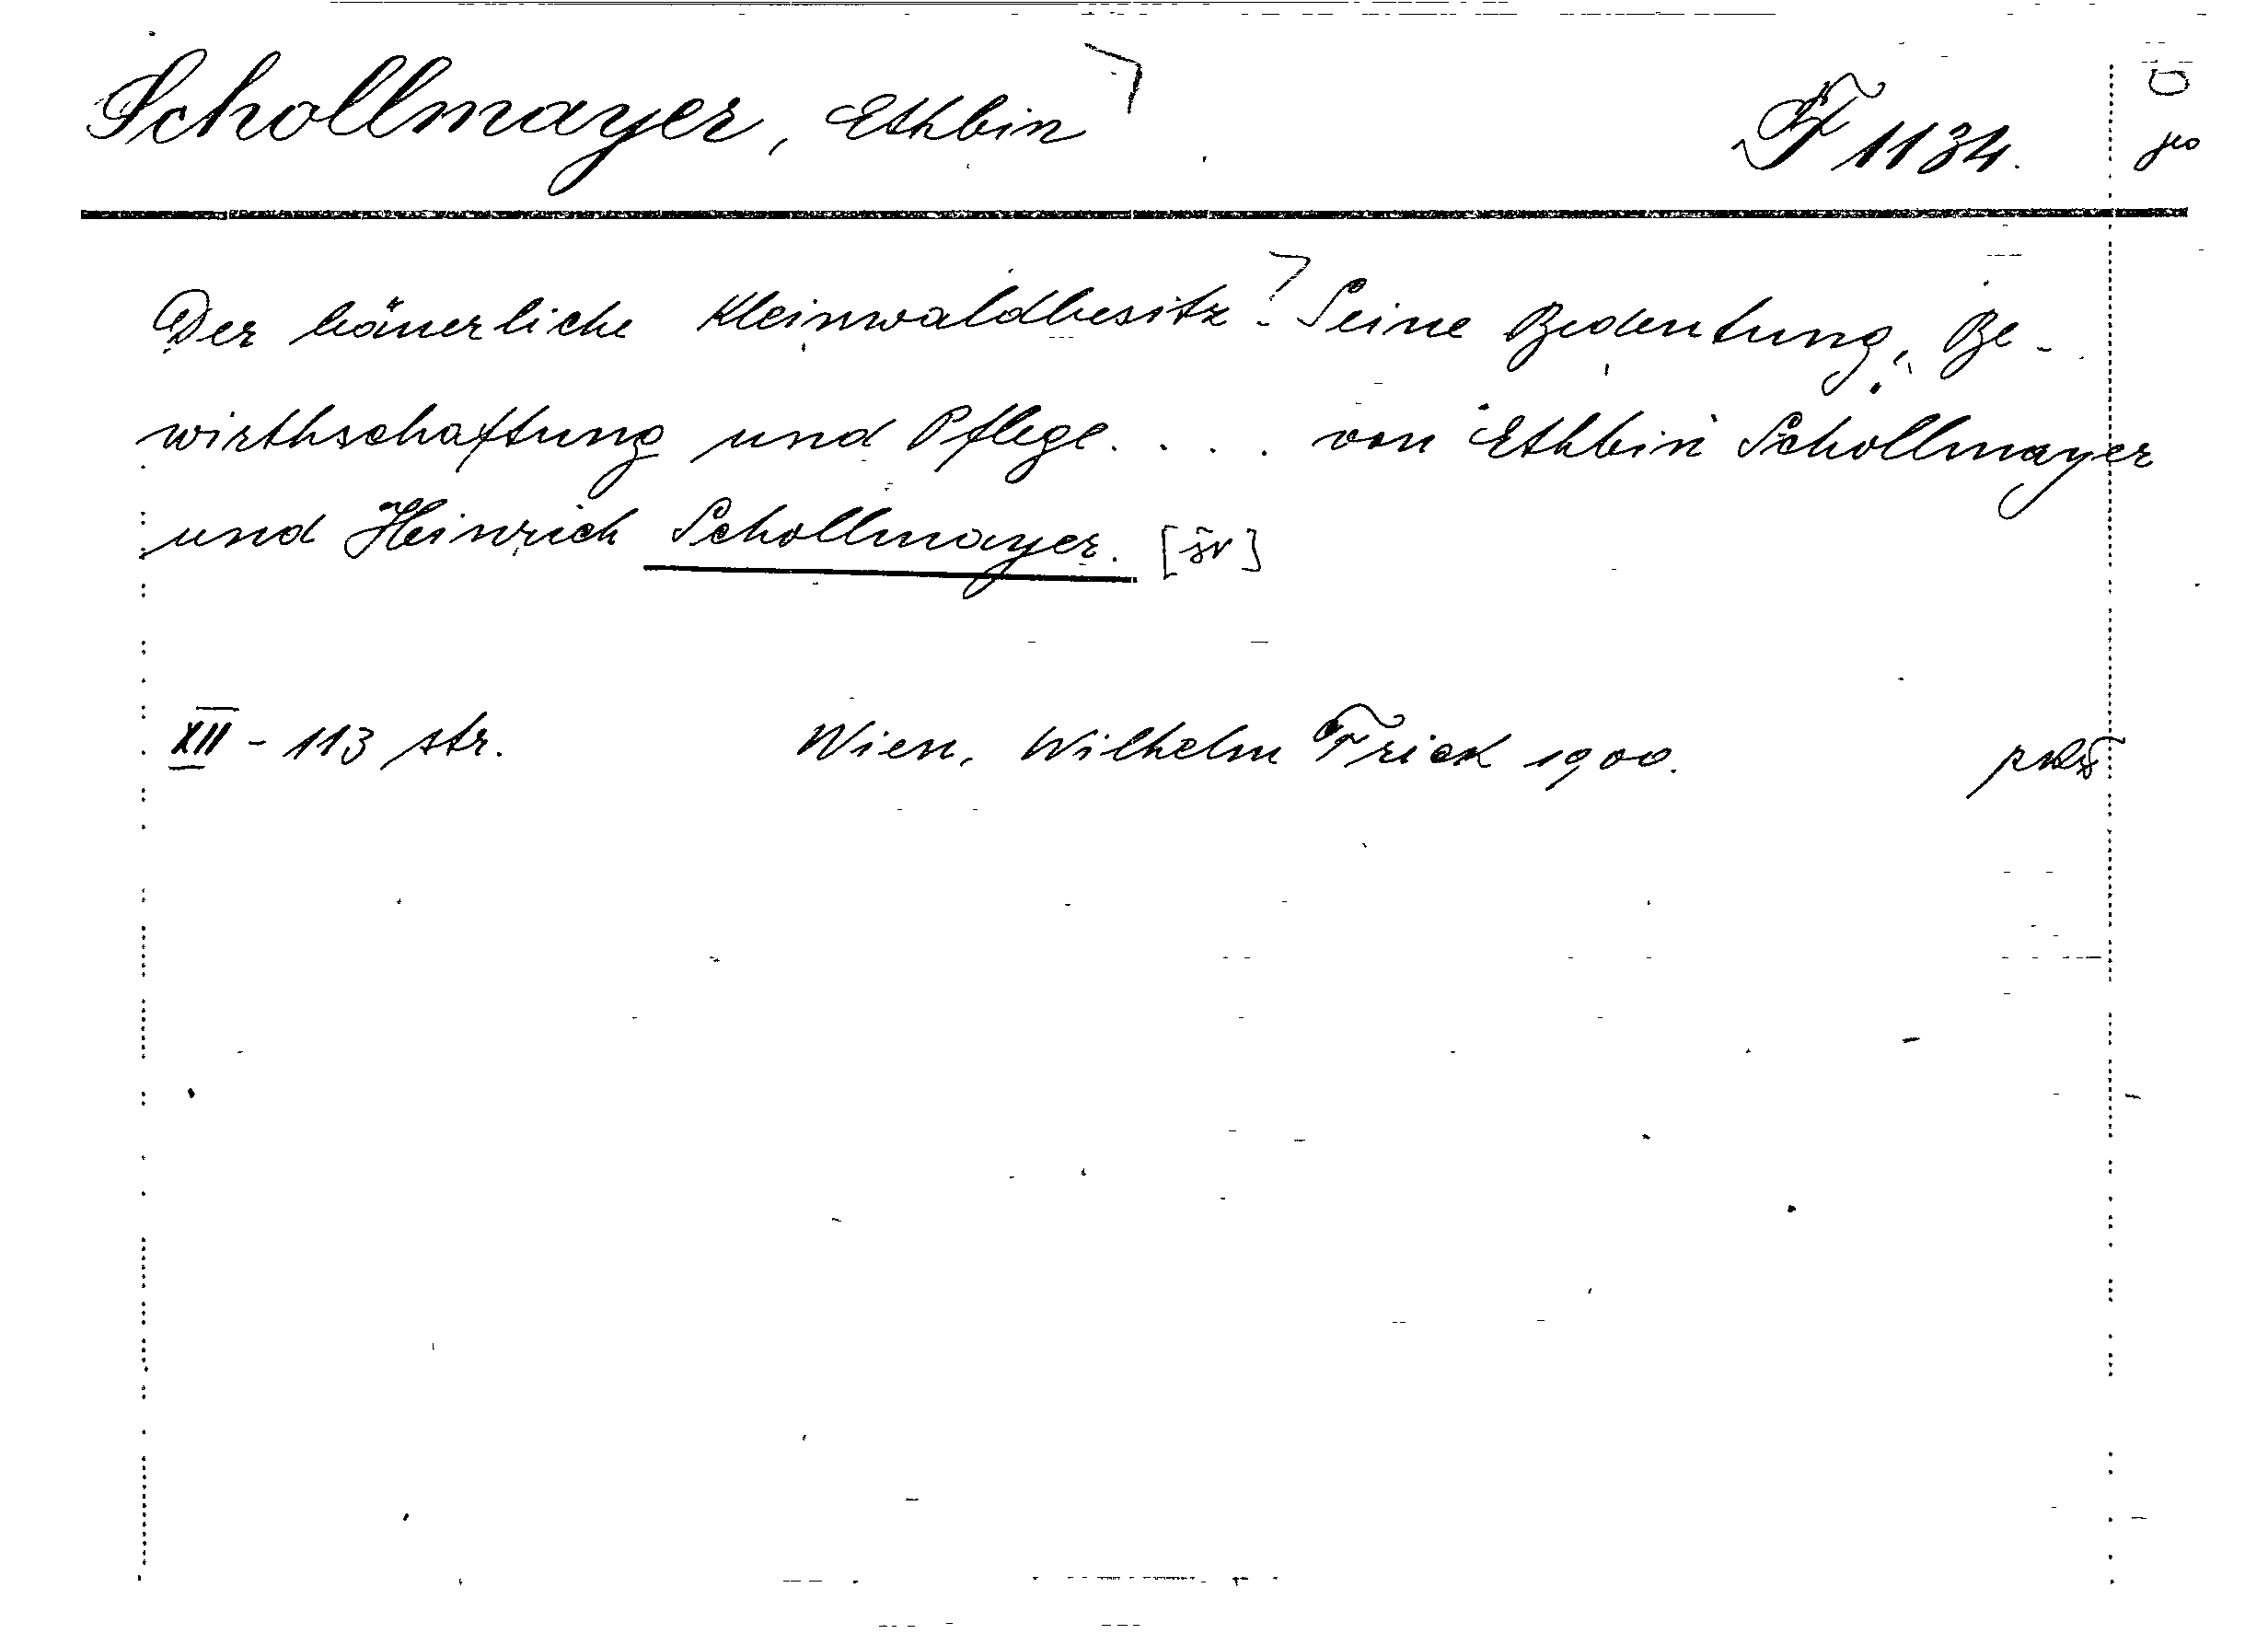 Schollmayer, Ethbin F 1134.
Der bäuerliche Kleinwaldbesitz. Seine Bedeutung, Be-
wirthschaftung und Pflege.... von Ethbin Schollmayer
und Heinrich Schollmayer. [sv]
XII - 113 str. Wien, Wilhelm Frick 1900.